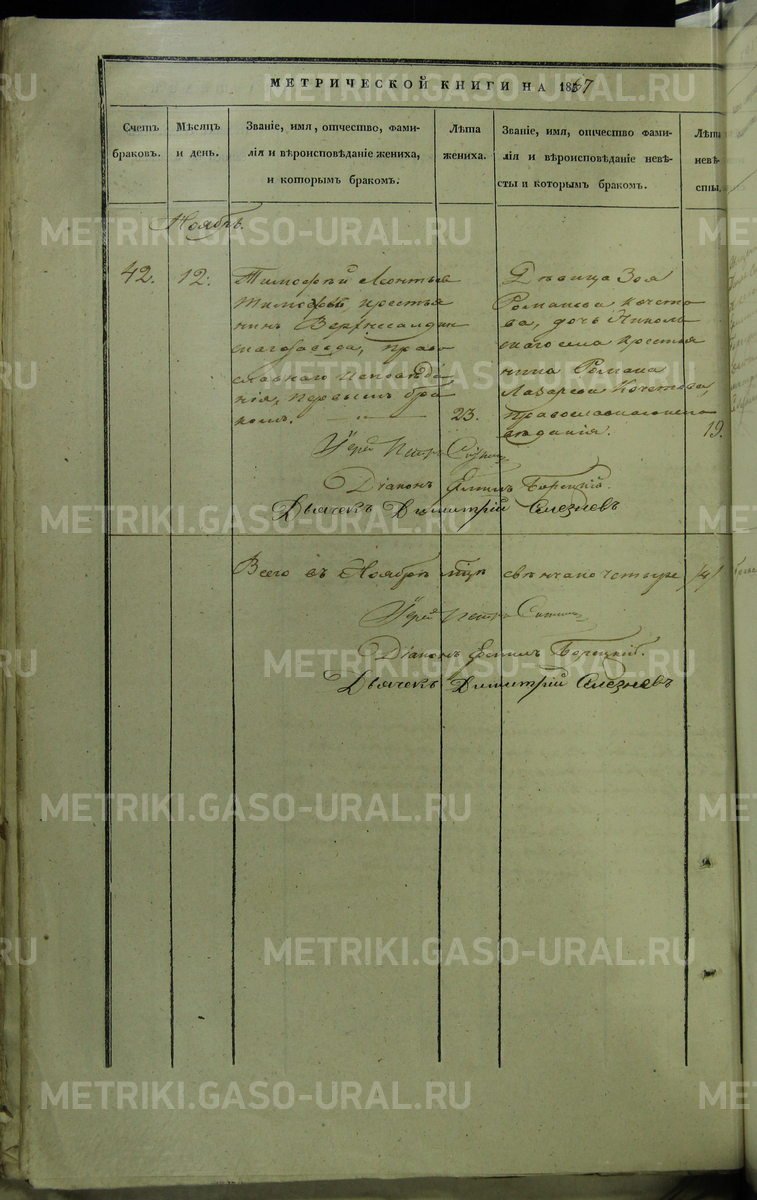 МЕТРИЧЕСКОЙ КНИГИ НА 1867
Счетъ браковъ.
Мѣсяцъ и день.
Званіе, имя, отчество, фами-
лія и вѣроисповѣданіе жениха,
и которымъ бракомъ.
Лѣта жениха.
Званіе, имя, отчество фами-
лія и вѣроисповѣданіе невѣ-
сты и которымъ бракомъ.
Лѣта невѣ-
сты.
Ноябрь.
42.
12.
Тимофѣй Леонтьев
крестья
нинъ Верхнесалдин
скаго завода, право
славнаго исповѣда
нія, первымъ бра
комъ.
23.
Дѣвица Зоя
Романова Кочето
ва, дочь Николь
скаго села крестья
нина Романа
Лазарева Кочетова,
православнаго испо
вѣданія.
19.
Іерей Петръ
Діаконъ Борецкій.
Дьячекъ Димитрій Селезневъ
Всего въ Ноябрѣ мцѣ свѣнчано четыре /4/
Іерей Петръ
Діаконъ Борецкій.
Дьячекъ Димитрій Селезневъ
METRIKI.GASO-URAL.RU